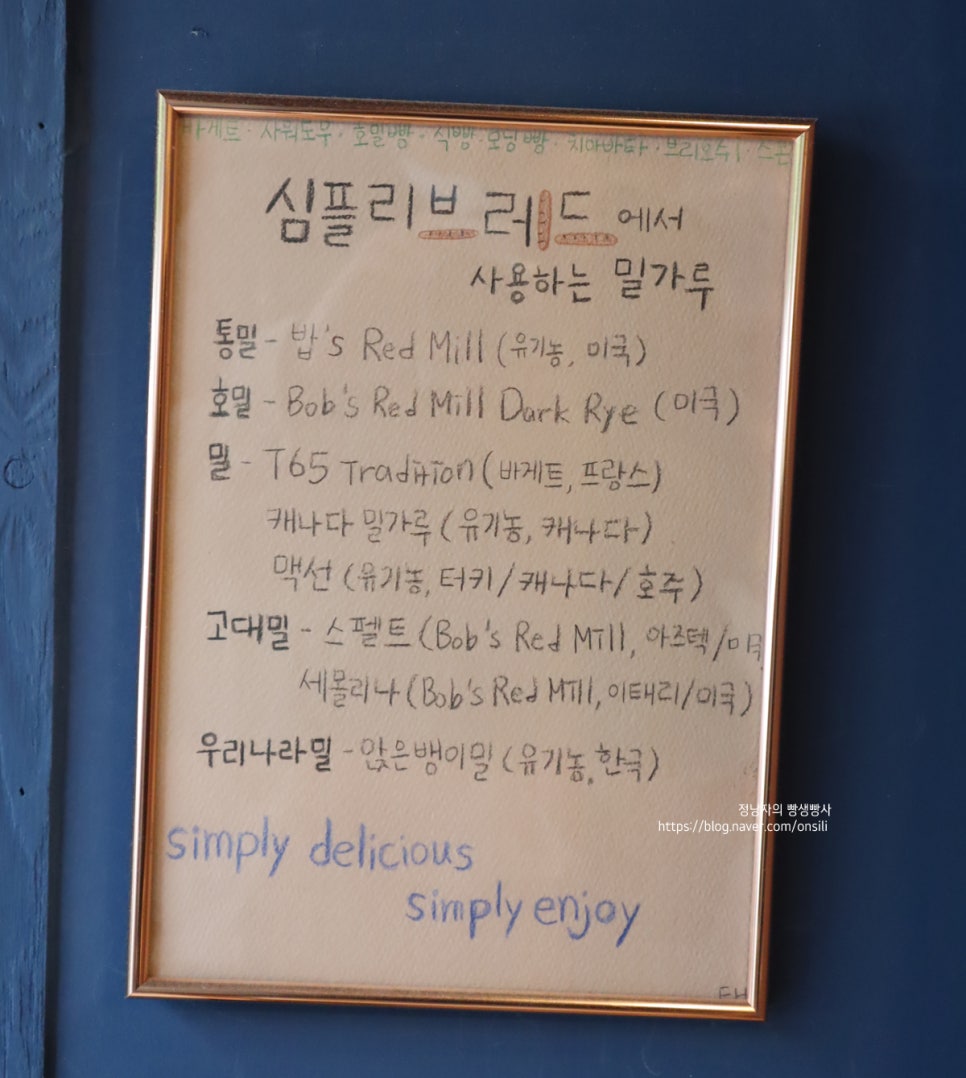 바게트 · 사워도우 · 호밀빵 · 식빵 · 모닝빵 · 치아바타 · 브리오슈 · 스콘
심플리브레드에서
사용하는 밀가루
통밀 - 밥's Red Mill (유기농, 미국)
호밀 - Bob's Red Mill Dark Rye (미국)
밀 - T65 Tradition (바게트, 프랑스)
캐나다 밀가루 (유기농, 캐나다)
맥선 (유기농, 터키/캐나다/호주)
고대밀 - 스펠트 (Bob's Red Mill, 아즈텍/미국
세몰리나 (Bob's Red Mill, 이태리/미국)
우리나라밀 - 앉은뱅이밀 (유기농, 한국)
정남자의 빵생빵사
https://blog.naver.com/onsili
simply delicious
simply enjoy